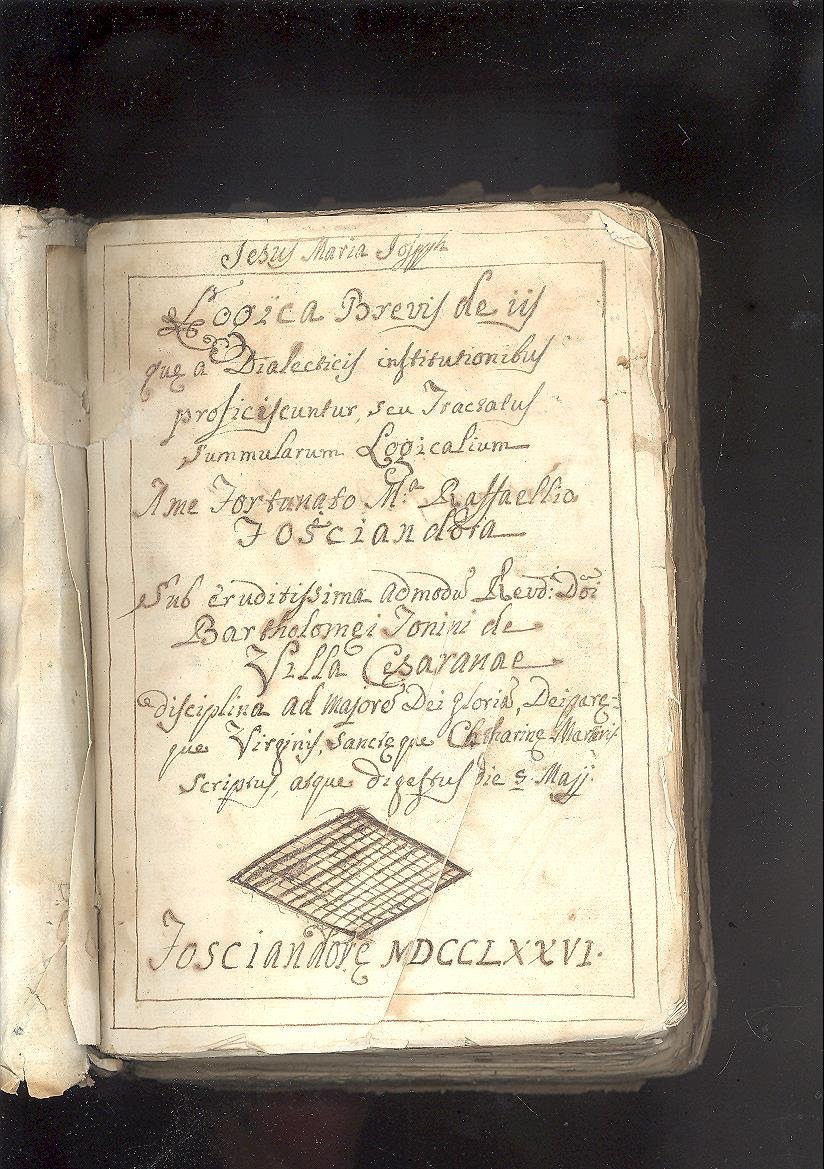 Jesus Maria Joseph
Logica Brevis de iis
quę a Dialecticis institutionibus
proficiscuntur, seu Tractatus
Summularum Logicalium
A me Fortunato M.ª Raffaellio
Fosciandora
Sub eruditissima admodũ Revd: Dñi
Bartholomęi Tonini de
Villa Cęsaranae
disciplina ad majorẽ Dei gloriã, Deiparę-
que Virginis, Sanctęque Chatharinę Martiris
scriptus, atque digestus die Majj.
Fosciandorę MDCCLXXVI.